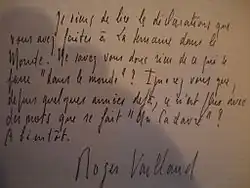 Je viens de lire les déclarations que
vous avez faites à La Semaine dans le
Monde. Ne savez vous donc rien de ce qui se
passe "dans le monde"? Ignorez vous que,
depuis quelques années déjà, ce n'est plus avec
des mots que se fait "Un Cadavre"?
A bientôt.
Roger Vailland